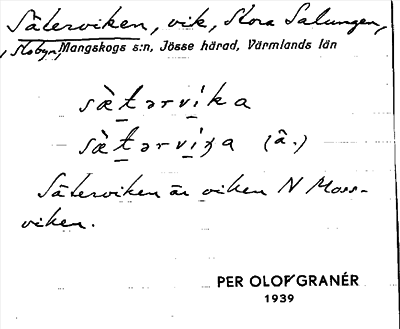 Säterviken, vik, Stora Salungen,
, Slobyn, Mangskogs s:n, Jösse härad, Värmlands län
sàtərvika
sàtərviɟa (ä.)
Säterviken är viken N Moss-
viken.
PER OLOF GRANÉR
1939